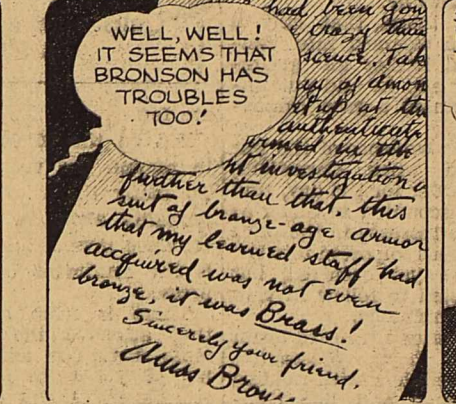 WELL, WELL!
IT SEEMS THAT
BRONSON HAS
TROUBLES
TOO!
had been
crazy
science. Tak
of
up at the
authenticate
in the
nt investigation
further than that, this
suit of bronze-age armor
that my learned staff had
acquired was not even
bronze, it was Brass!
Sincerely your friend,